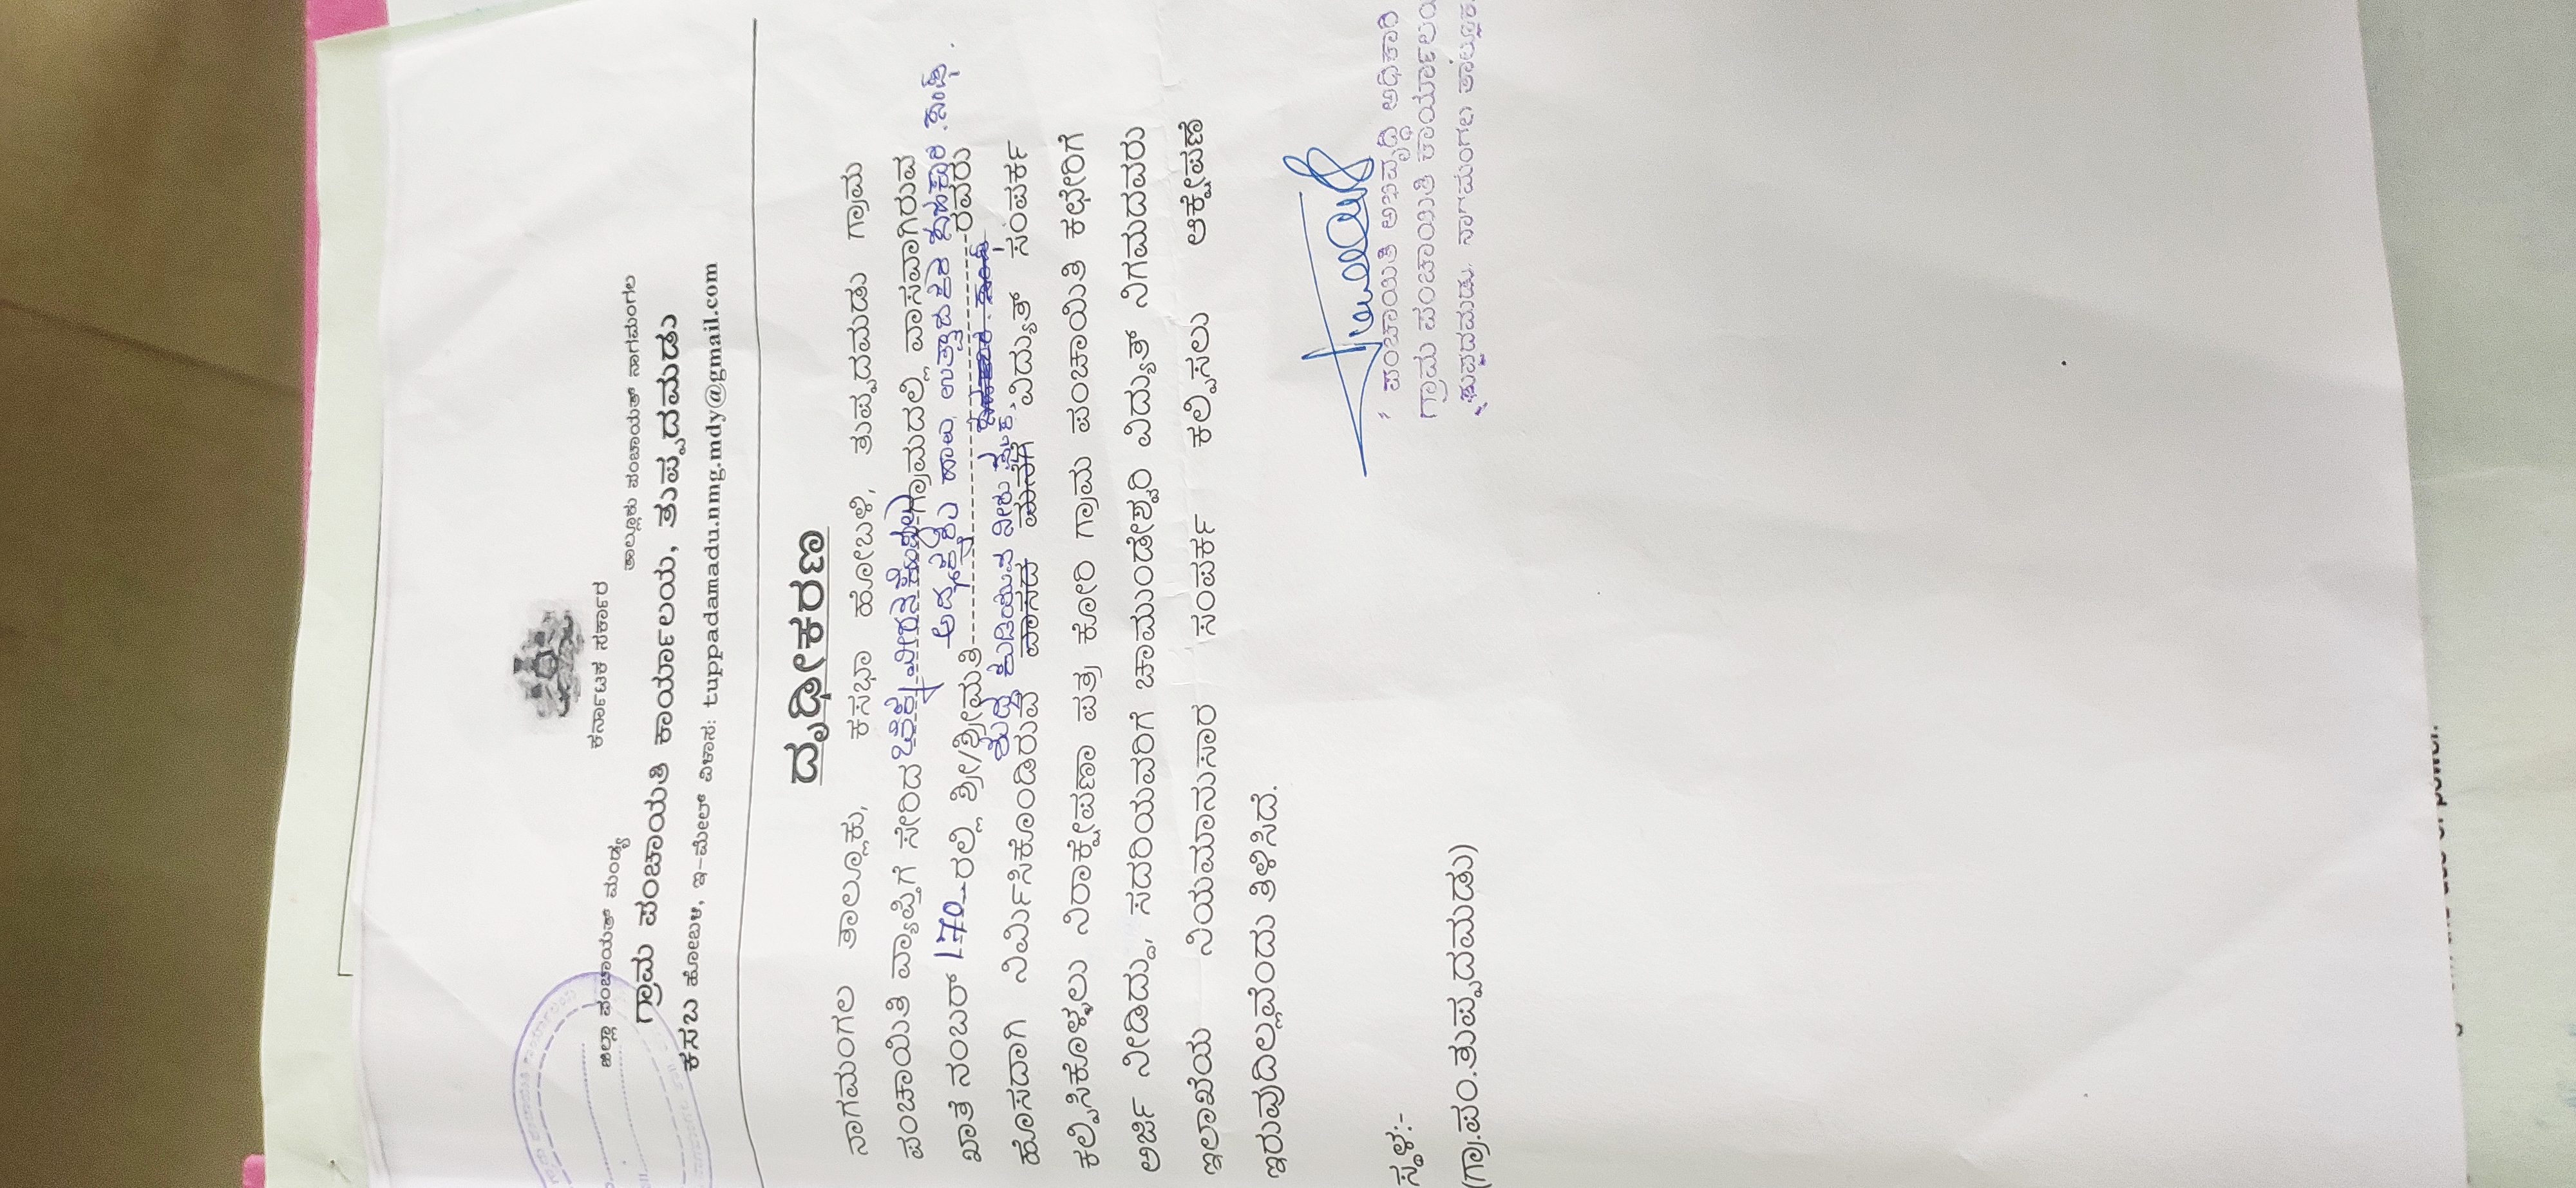 ಕರ್ನಾಟಕ ಸರ್ಕಾರ
ಜಿಲ್ಲಾ ಪಂಚಾಯತ್ ಮಂಡ್ಯ ತಾಲ್ಲೂಕು ಪಂಚಾಯತ್ ನಾಗಮಂಗಲ
ಗ್ರಾಮ ಪಂಚಾಯತಿ ಕಾರ್ಯಾಲಯ, ತುಪ್ಪದಮಡು
ಕಸಬ ಹೋಬಳಿ, ಇ-ಮೇಲ್ ವಿಳಾಸ: tuppadamadu.nmg.mdy@gmail.com
ದೃಢೀಕರಣ
ನಾಗಮಂಗಲ ತಾಲ್ಲೂಕು, ಕಸಭಾ ಹೋಬಳಿ, ತುಪ್ಪದಮಡು ಗ್ರಾಮ
ಪಂಚಾಯಿತಿ ವ್ಯಾಪ್ತಿಗೆ ಸೇರಿದ ಗ್ರಾಮದಲ್ಲಿ ವಾಸವಾಗಿರುವ
ಅಧ್ಯಕ್ಷರು ಹಾಲು ಉತ್ಪಾದಕರ ಸಹಕಾರ ಸಂಘ.
ಖಾತೆ ನಂಬರ್ 170 ರಲ್ಲಿ ಶ್ರೀ/ಶ್ರೀಮತಿ ರವರು
ಶುದ್ಧ ಕುಡಿಯುವ ನೀರು
ಹೊಸದಾಗಿ ನಿರ್ಮಿಸಿಕೊಂಡಿರುವ ವಾಸದ ಮನೆಗೆ ವಿದ್ಯುತ್ ಸಂಪರ್ಕ
ಕಲ್ಪಿಸಿಕೊಳ್ಳಲು ನಿರಾಕ್ಷೇಪಣಾ ಪತ್ರ ಕೋರಿ ಗ್ರಾಮ ಪಂಚಾಯಿತಿ ಕಛೇರಿಗೆ
ಅರ್ಜಿ ನೀಡಿದ್ದು, ಸದರಿಯವರಿಗೆ ಚಾಮುಂಡೇಶ್ವರಿ ವಿದ್ಯುತ್ ನಿಗಮದವರು
ಇಲಾಖೆಯ ನಿಯಮಾನುಸಾರ ಸಂಪರ್ಕ ಕಲ್ಪಿಸಲು ಆಕ್ಷೇಪಣೆ
ಇರುವುದಿಲ್ಲವೆಂದು ತಿಳಿಸಿದೆ.
ಪಂಚಾಯಿತಿ ಅಭಿವೃದ್ಧಿ ಅಧಿಕಾರಿ
ಗ್ರಾಮ ಪಂಚಾಯಿತಿ ಕಾರ್ಯಾಲಯ
ತುಪ್ಪದಮಡು. ನಾಗಮಂಗಲ ತಾಲ್ಲೂಕು.
ಸ್ಥಳ:-
(ಗ್ರಾ.ಪಂ.ತುಪ್ಪದಮಡು)